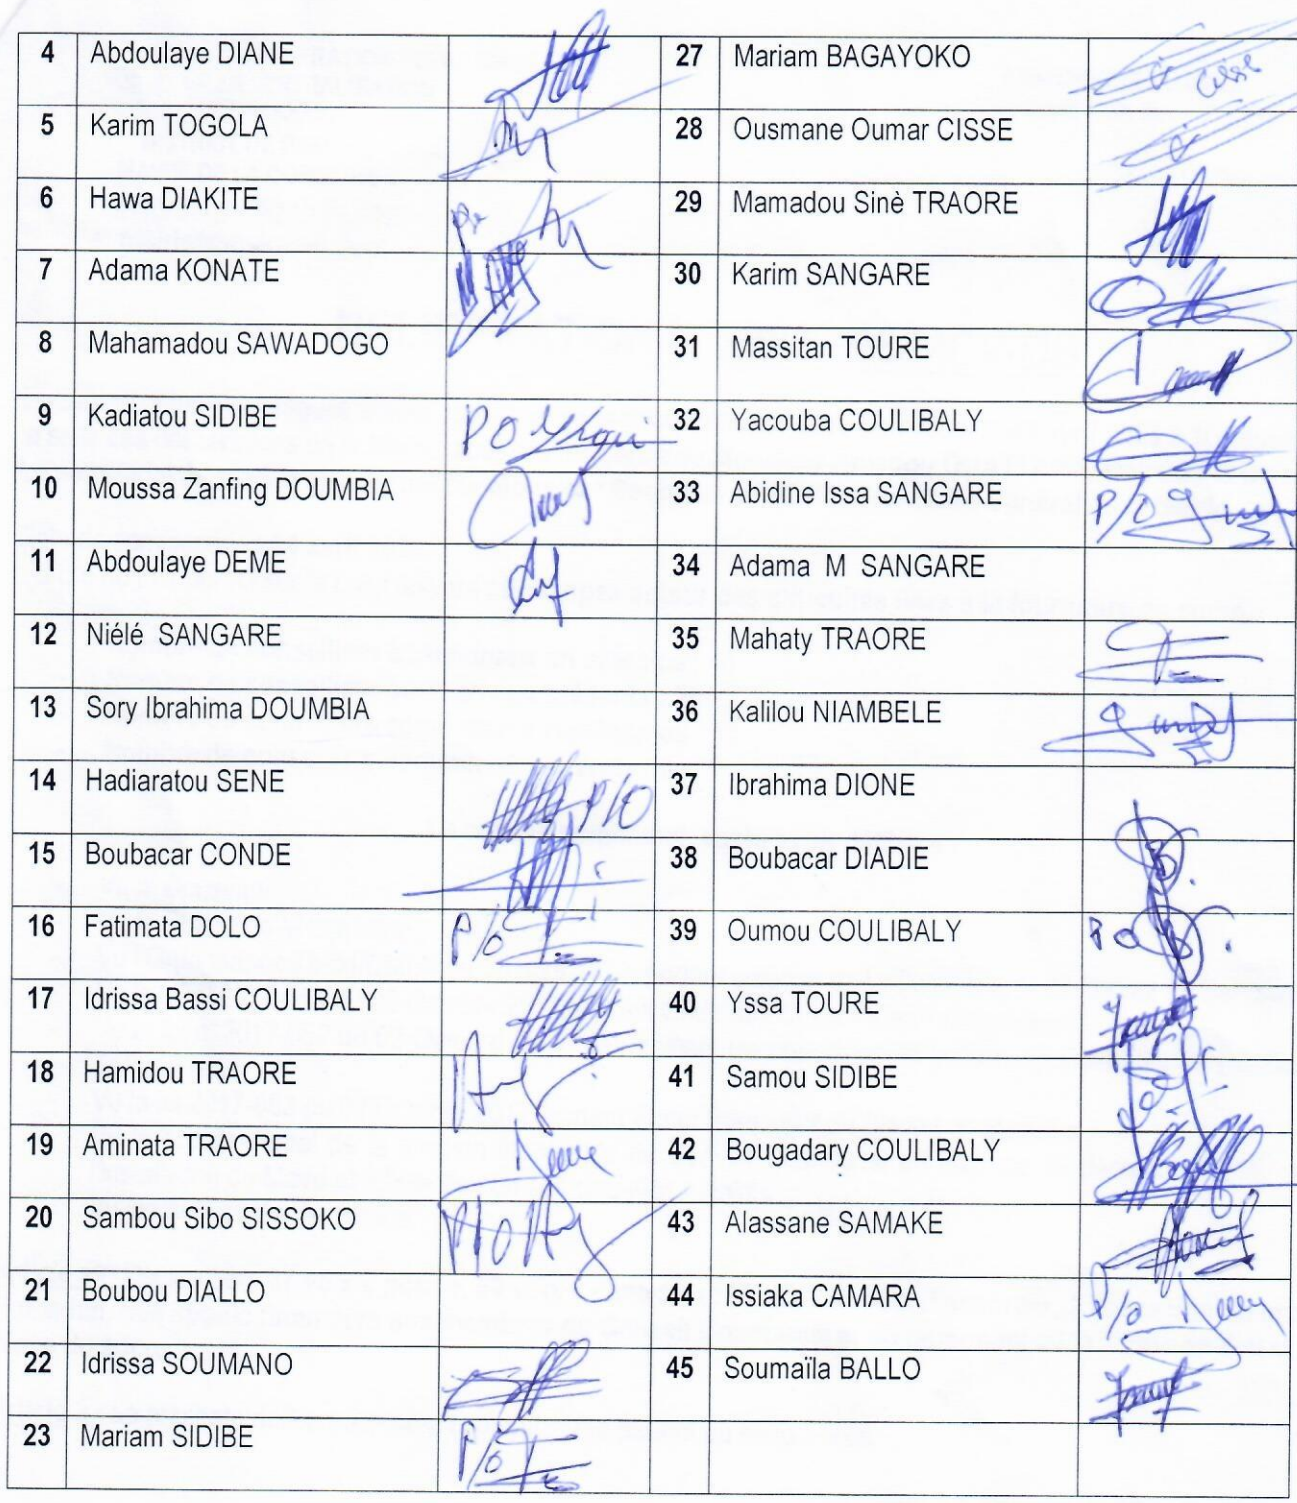 4 Abdoulaye DIANE 27 Mariam BAGAYOKO Cisse
5 Karim TOGOLA 28 Ousmane Oumar CISSE
6 Hawa DIAKITE 29 Mamadou Sinè TRAORE
7 Adama KONATE 30 Karim SANGARE
8 Mahamadou SAWADOGO 31 Massitan TOURE
9 Kadiatou SIDIBE PO 32 Yacouba COULIBALY
10 Moussa Zanfing DOUMBIA 33 Abidine Issa SANGARE P/O
11 Abdoulaye DEME 34 Adama M SANGARE
12 Niélé SANGARE 35 Mahaty TRAORE
13 Sory Ibrahima DOUMBIA 36 Kalilou NIAMBELE
14 Hadiaratou SENE P/O 37 Ibrahima DIONE
15 Boubacar CONDE 38 Boubacar DIADIE
16 Fatimata DOLO P/O 39 Oumou COULIBALY Po
17 Idrissa Bassi COULIBALY 40 Yssa TOURE
18 Hamidou TRAORE 41 Samou SIDIBE
19 Aminata TRAORE 42 Bougadary COULIBALY
20 Sambou Sibo SISSOKO P/O 43 Alassane SAMAKE
21 Boubou DIALLO 44 Issiaka CAMARA P/o
22 Idrissa SOUMANO 45 Soumaïla BALLO
23 Mariam SIDIBE P/o